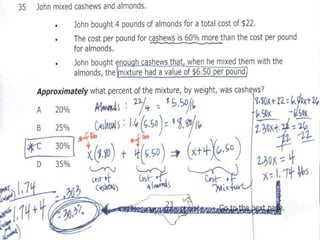 35 John mixed cashews and almonds.
• John bought 4 pounds of almonds for a total cost of $22.
• The cost per pound for cashews is 60% more than the cost per pound
for almonds.
• John bought enough cashews that, when he mixed them with the
almonds, the mixture had a value of $6.50 per pound.
Approximately what percent of the mixture, by weight, was cashews?
A 20%
B 25%
*C 30%
D 35%
Almonds: 22/4 = $5.50/lb
Cashews: 1.6(5.50) = $8.80/lb
# of lbs # of lbs
x(8.80) + 4(5.50) ⇒ (x+4)(6.50)
cost of cashews
cost of almonds
cost of mixture
8.80x+22=6.50x+26
-6.50x -6.50x
2.30x+22=26
-22 -22
2.30x=4
x=1.74 lbs.
1.74
1.74+4
=.303
=30.3%
23
Go to the next page